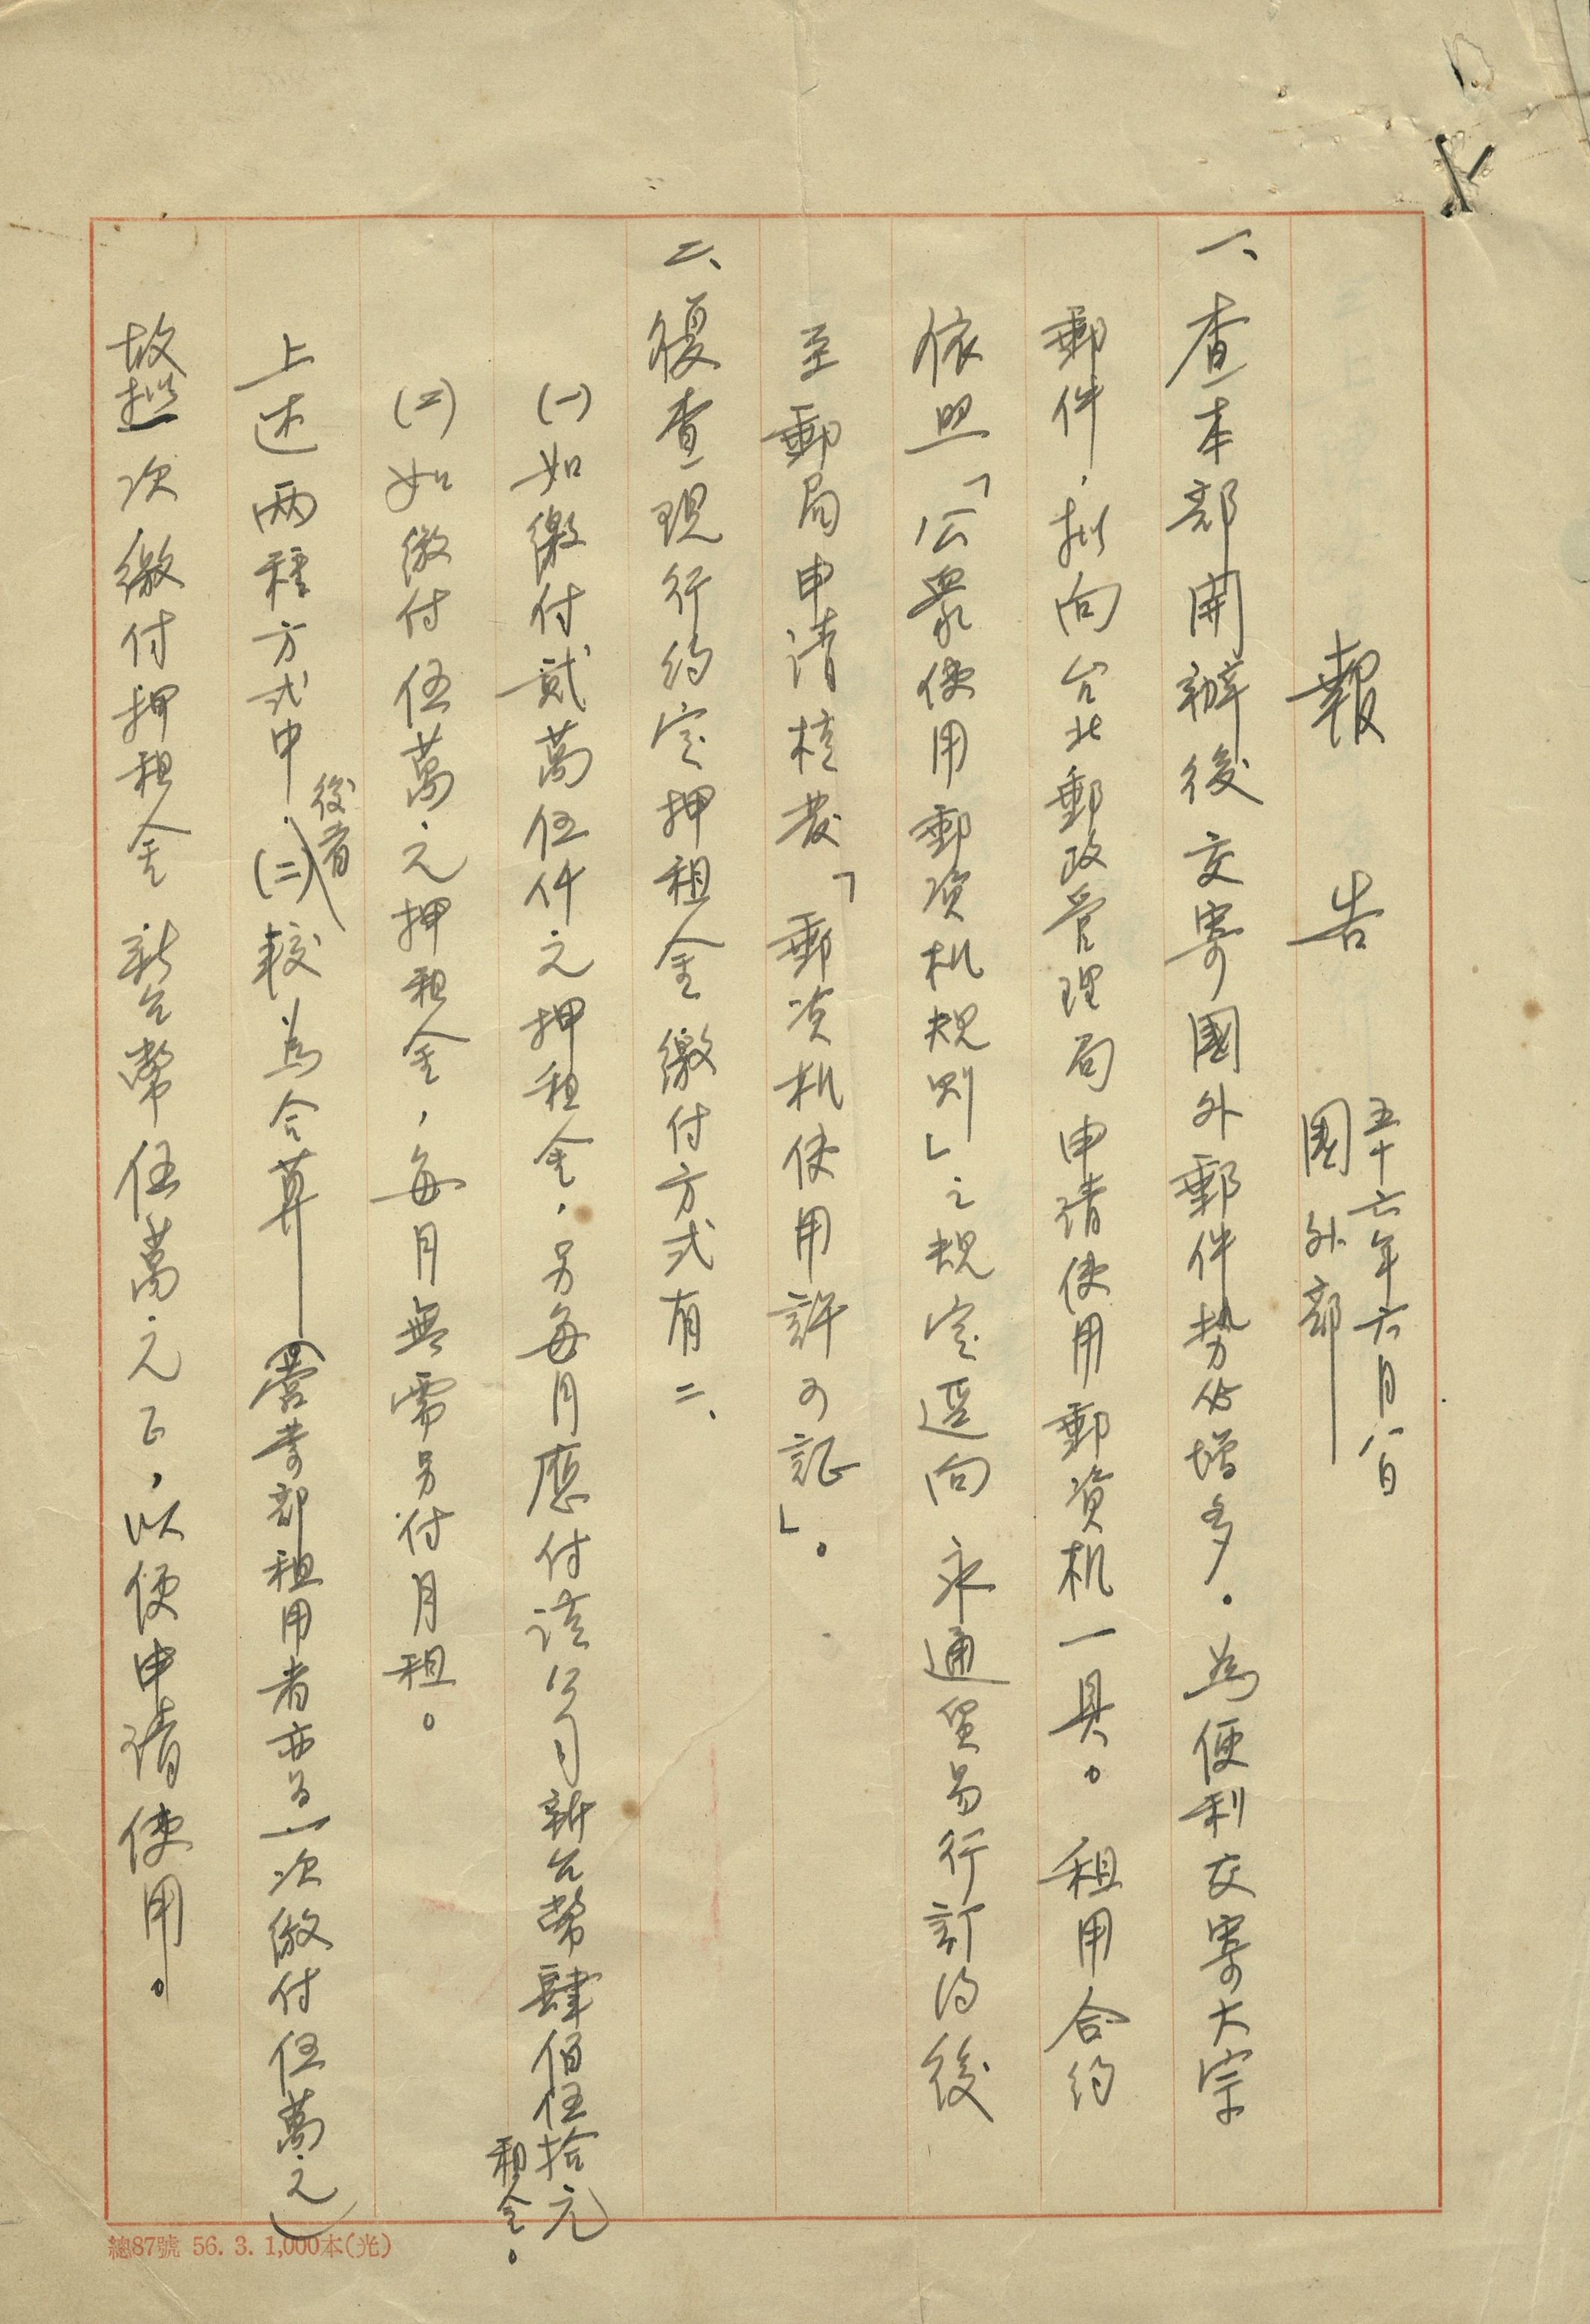 報告
五十六年六月八日
國外部
一、查本部開辦後交寄國外郵件勢必增多。為便利交寄大宗
郵件，拟向台北郵政管理局申請使用郵資机一具。租用合約
依照「公眾使用郵資机規則」之規定逕向永通貿易行訂約後
至郵局申請核發「郵資机使用許可証」。
二、復查現行約定押租金繳付方式有二、
(一)如繳付貳萬伍仟元押租金，另每月應付該公司新台幣肆佰伍拾元
租金。
(二)如繳付伍萬元押租金，每月無需另付月租。
上述兩種方式中，(二)較為合算(營業部租用者亦為一次繳付伍萬元)
後者
故拟一次繳付押租金新台幣伍萬元正，以便申請使用。
總87號 56. 3. 1,000本(光)